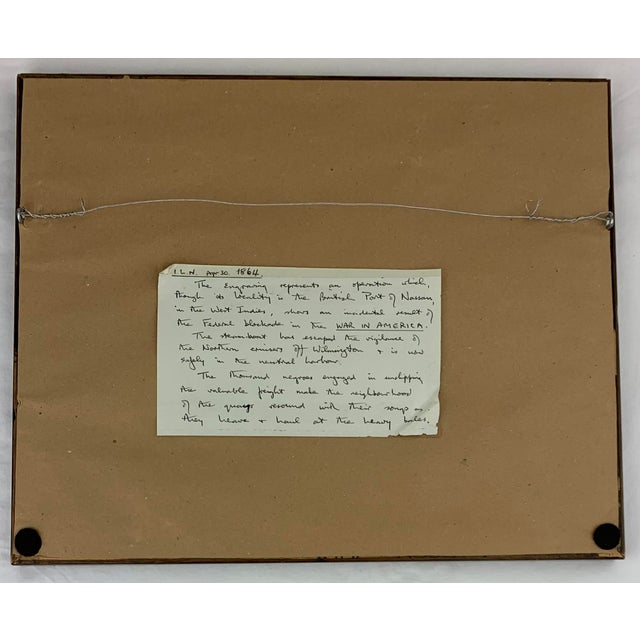 I.L.N. Apr 30. 1864.
The engraving represents an operation which,
though its locality is the British Port of Nassau,
in the West Indies, shows an incidental result of
the Federal blockade in the WAR IN AMERICA.
The steamboat has escaped the vigilance of
the Northern cruisers off Wilmington & is now
safely in the neutral harbour.
The thousand negroes engaged in unshipping
the valuable freight make the neighbourhood
of the quays resound with their songs as
they heave & haul at the heavy bales.